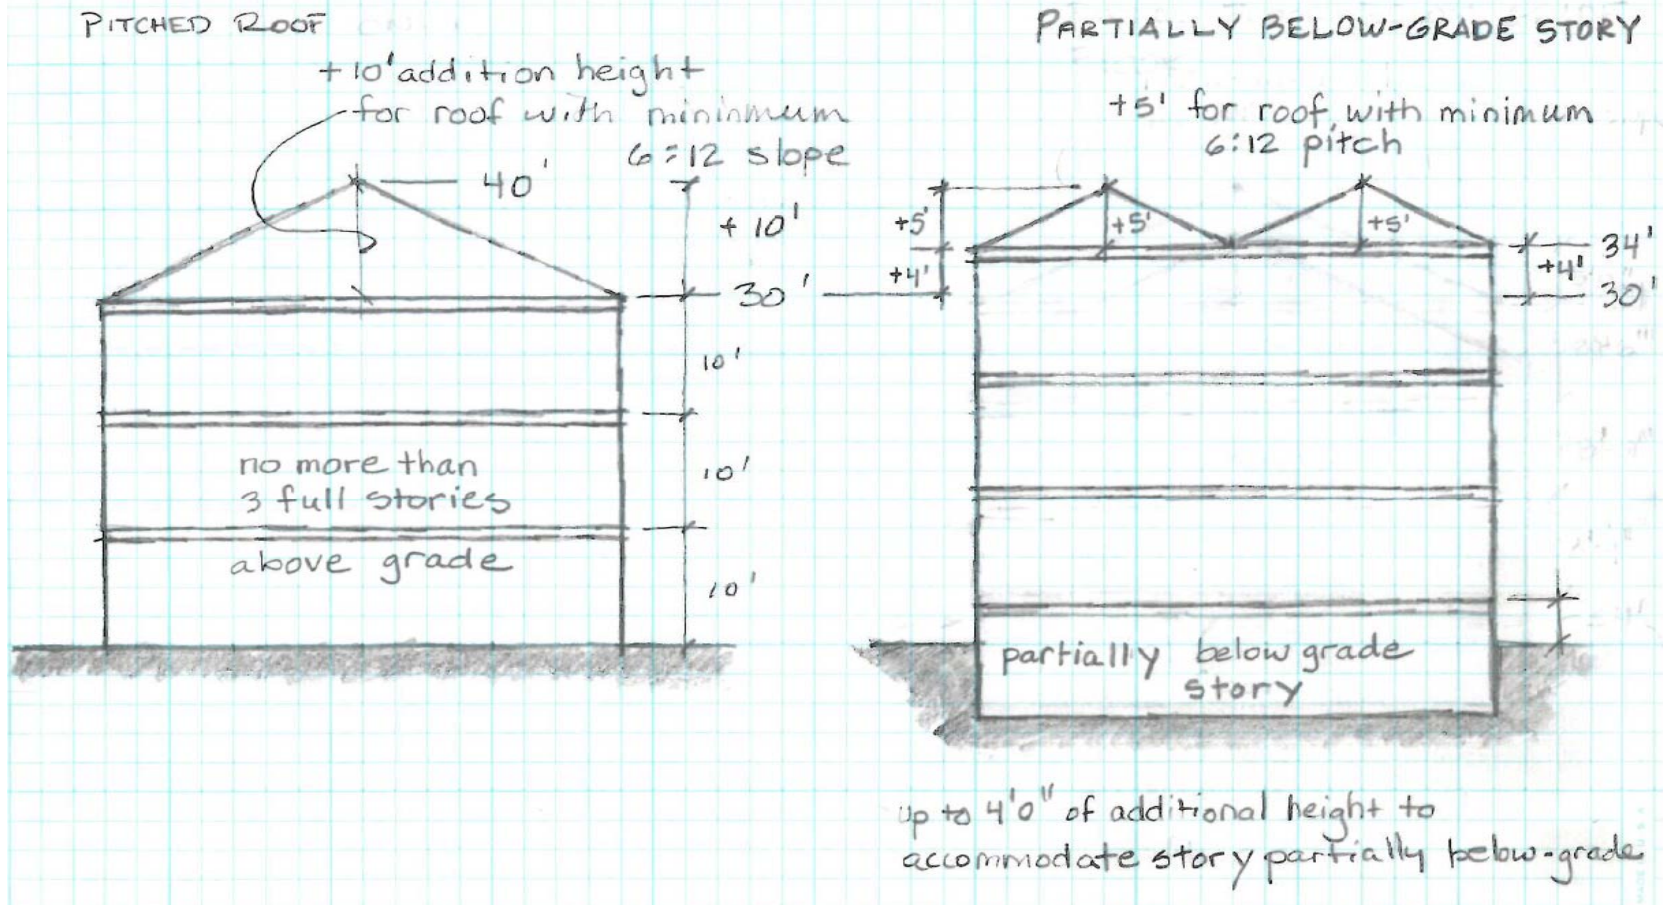 PITCHED ROOF
+10' addition height
for roof with mininmum
6:12 slope
40'
+10'
30'
10'
10'
10'
no more than
3 full stories
above grade
PARTIALLY BELOW-GRADE STORY
+5' for roof with minimum
6:12 pitch
+5'
+5'
+5'
+4'
34'
+4'
30'
partially below grade
story
up to 4'0" of additional height to
accommodate story partially below-grade